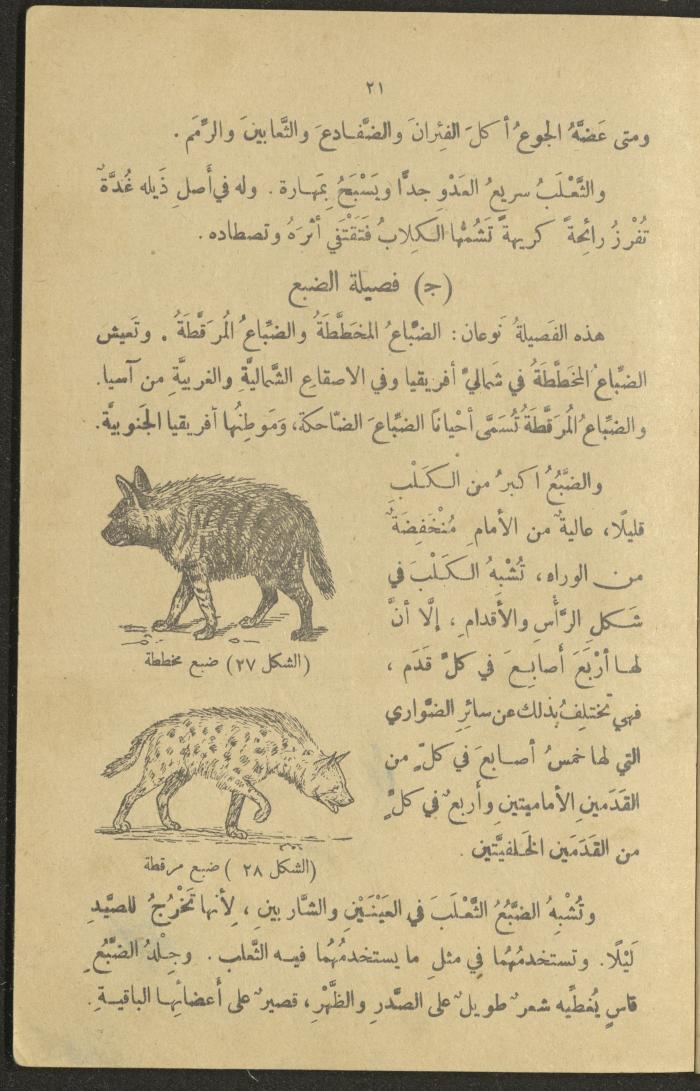 ٢١
ومتى عَضَّهُ الجوعُ أكلَ الفِئرانَ والضَّفادعَ والثَّعابينَ والرِّمَم .
والثَّعْلَبُ سريعُ العَدْوِ جدًّا ويَسْبَحُ بِمَهارة . وله في أَصلِ ذَيله غُدَّةٌ
تُفْرِزُ رائِحةً كريهةً تَشُمُّها الكلابُ فَتَقْتَفي أثرَهُ وتصطاده .
(ج) فصيلة الضبع
هذه الفَصيلةُ نَوعان : الضِّباعُ المخَطَّطَةُ والضِّباعُ المُرَقَّطَةُ . وتَعيش
الضِّباعُ المُخَطَّطَةُ في شَماليِّ أفريقيا وفي الاصقاعِ الشَّماليَّةِ والغربيَّةِ من آسيا.
والضِّباعُ المُرَقَّطَةُ تُسَمَّى أحْيانًا الضِّباعَ الضّاحكةَ، وَمَوطِنُها آفريقيا الجَنوبيَّة.
والضَّبُعُ اكبرُ من الكَلْبِ
قليلًا، عاليةٌ من الأمامِ مُنْخَفِضَةٌ
من الوراء ، تُشْبِهُ الكَلْبَ في
شَكلِ الرَّأْسِ والأَقدامِ ، إلَّا أنَّ
لها أرْبَعَ أَصابِعَ في كلِّ قَدَم ،
فهي تختلِفُ بذلك عن سائرِ الضَّواري
التي لها خمسُ أصابعَ في كلٍّ من
القَدَمينِ الأماميتينِ وأربعٌ في كلٍّ
من القَدَمَينِ الخَلفيَّتين .
(الشكل ٢٧) ضبع مخططة
(الشكل ٢٨ ) ضبع مرقطة
وتُشْبِهُ الضَّبُعُ الثَّعْلَبَ في العَيْنَيْنِ والشَّاربينِ ، لِأَنها تَخْرُجُ للصَّيدِ
لَيْلًا. وتستخدمُهُما في مثلِ ما يستخدمُهُما فيه الثَّعلب . وجِلدُ الضَّبُعِ
قاسٍ يُغطِّيه شعرٌ طويلٌ على الصَّدرِ والظَّهْرِ ، قصيرٌ على أعضائِها الباقيةِ .